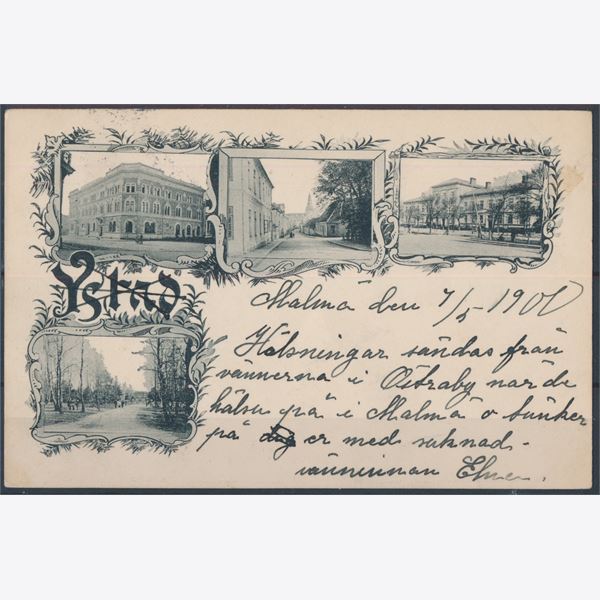 Ystad
Malmö den 7/5 1900
Helsningar sändas från
vännerna i Östraby när de
hälsa på i Malmö o tänker
på dig er med saknad.
väninnan